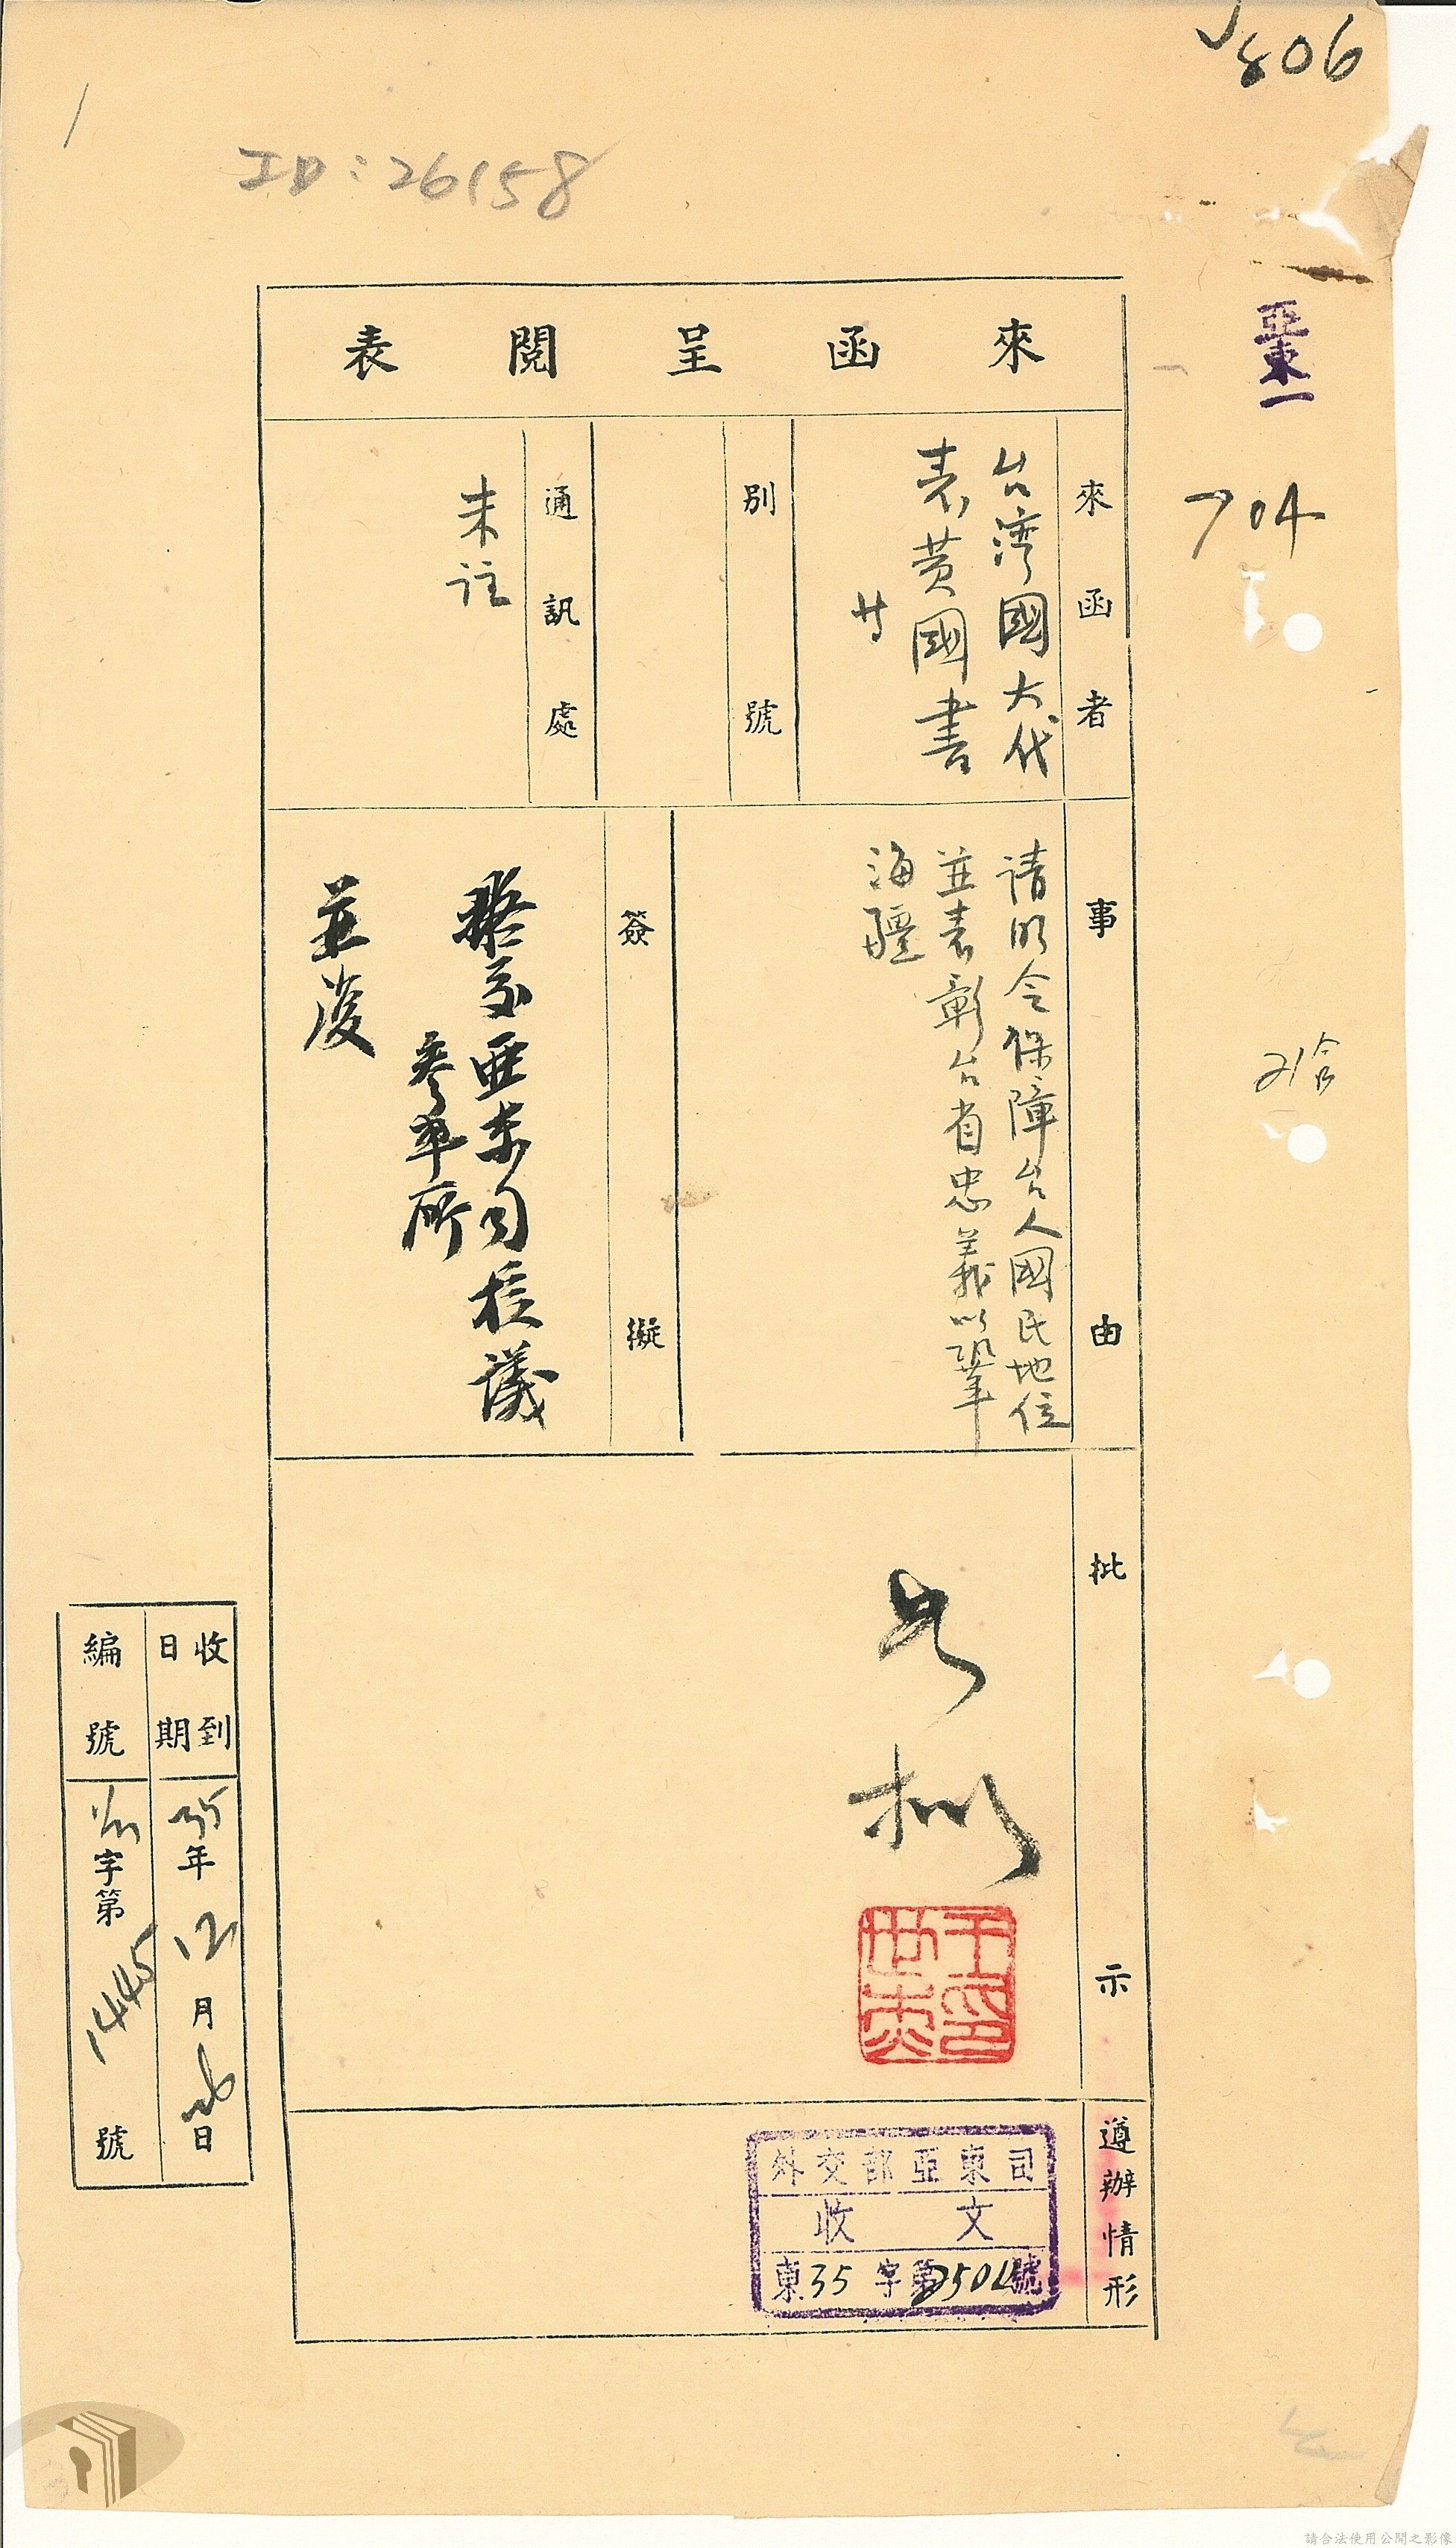 806
ID:26158
亞東一
704
來函呈閱表
來函者
台灣國大代
表黃國書
廿
別號
通訊處
未註
事由
请明令保障台人國民地位
並表彰台省忠義以鞏
海疆
簽擬
擬交亜東司核議
並復
批示
如擬
王印世杰
遵辦情形
外交部亞東司
收文
東35字第2504號
收到日期
35年12月26日
編號
字第1445號
請合法使用公開之影像